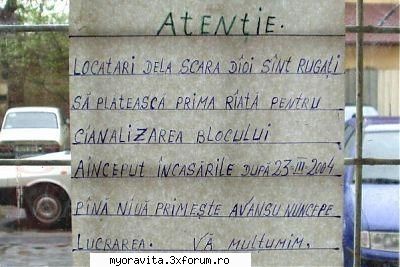 ATENȚIE.
LOCATARI DELA SCARA DÎOI SÎNT RUGAȚI
SĂ PLĂTEASCĂ PRIMA RÎATĂ PENTRU
CÎANALIZAREA BLOCULUI
AÎNCEPUT ÎNCASĂRILE DUPĂ 23-III-2004
PÎNĂ NIUĂ PRIMEȘTE AVANSU NUNCEPE
LUCRAREA. VĂ MULȚUMIM.
myoravita.3xforum.ro